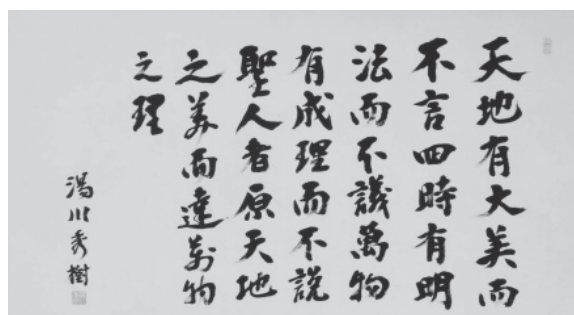 天地有大美而
不言四時有明
法而不議萬物
有成理而不説
聖人者原天地
之美而達万物
之理
湯川秀樹